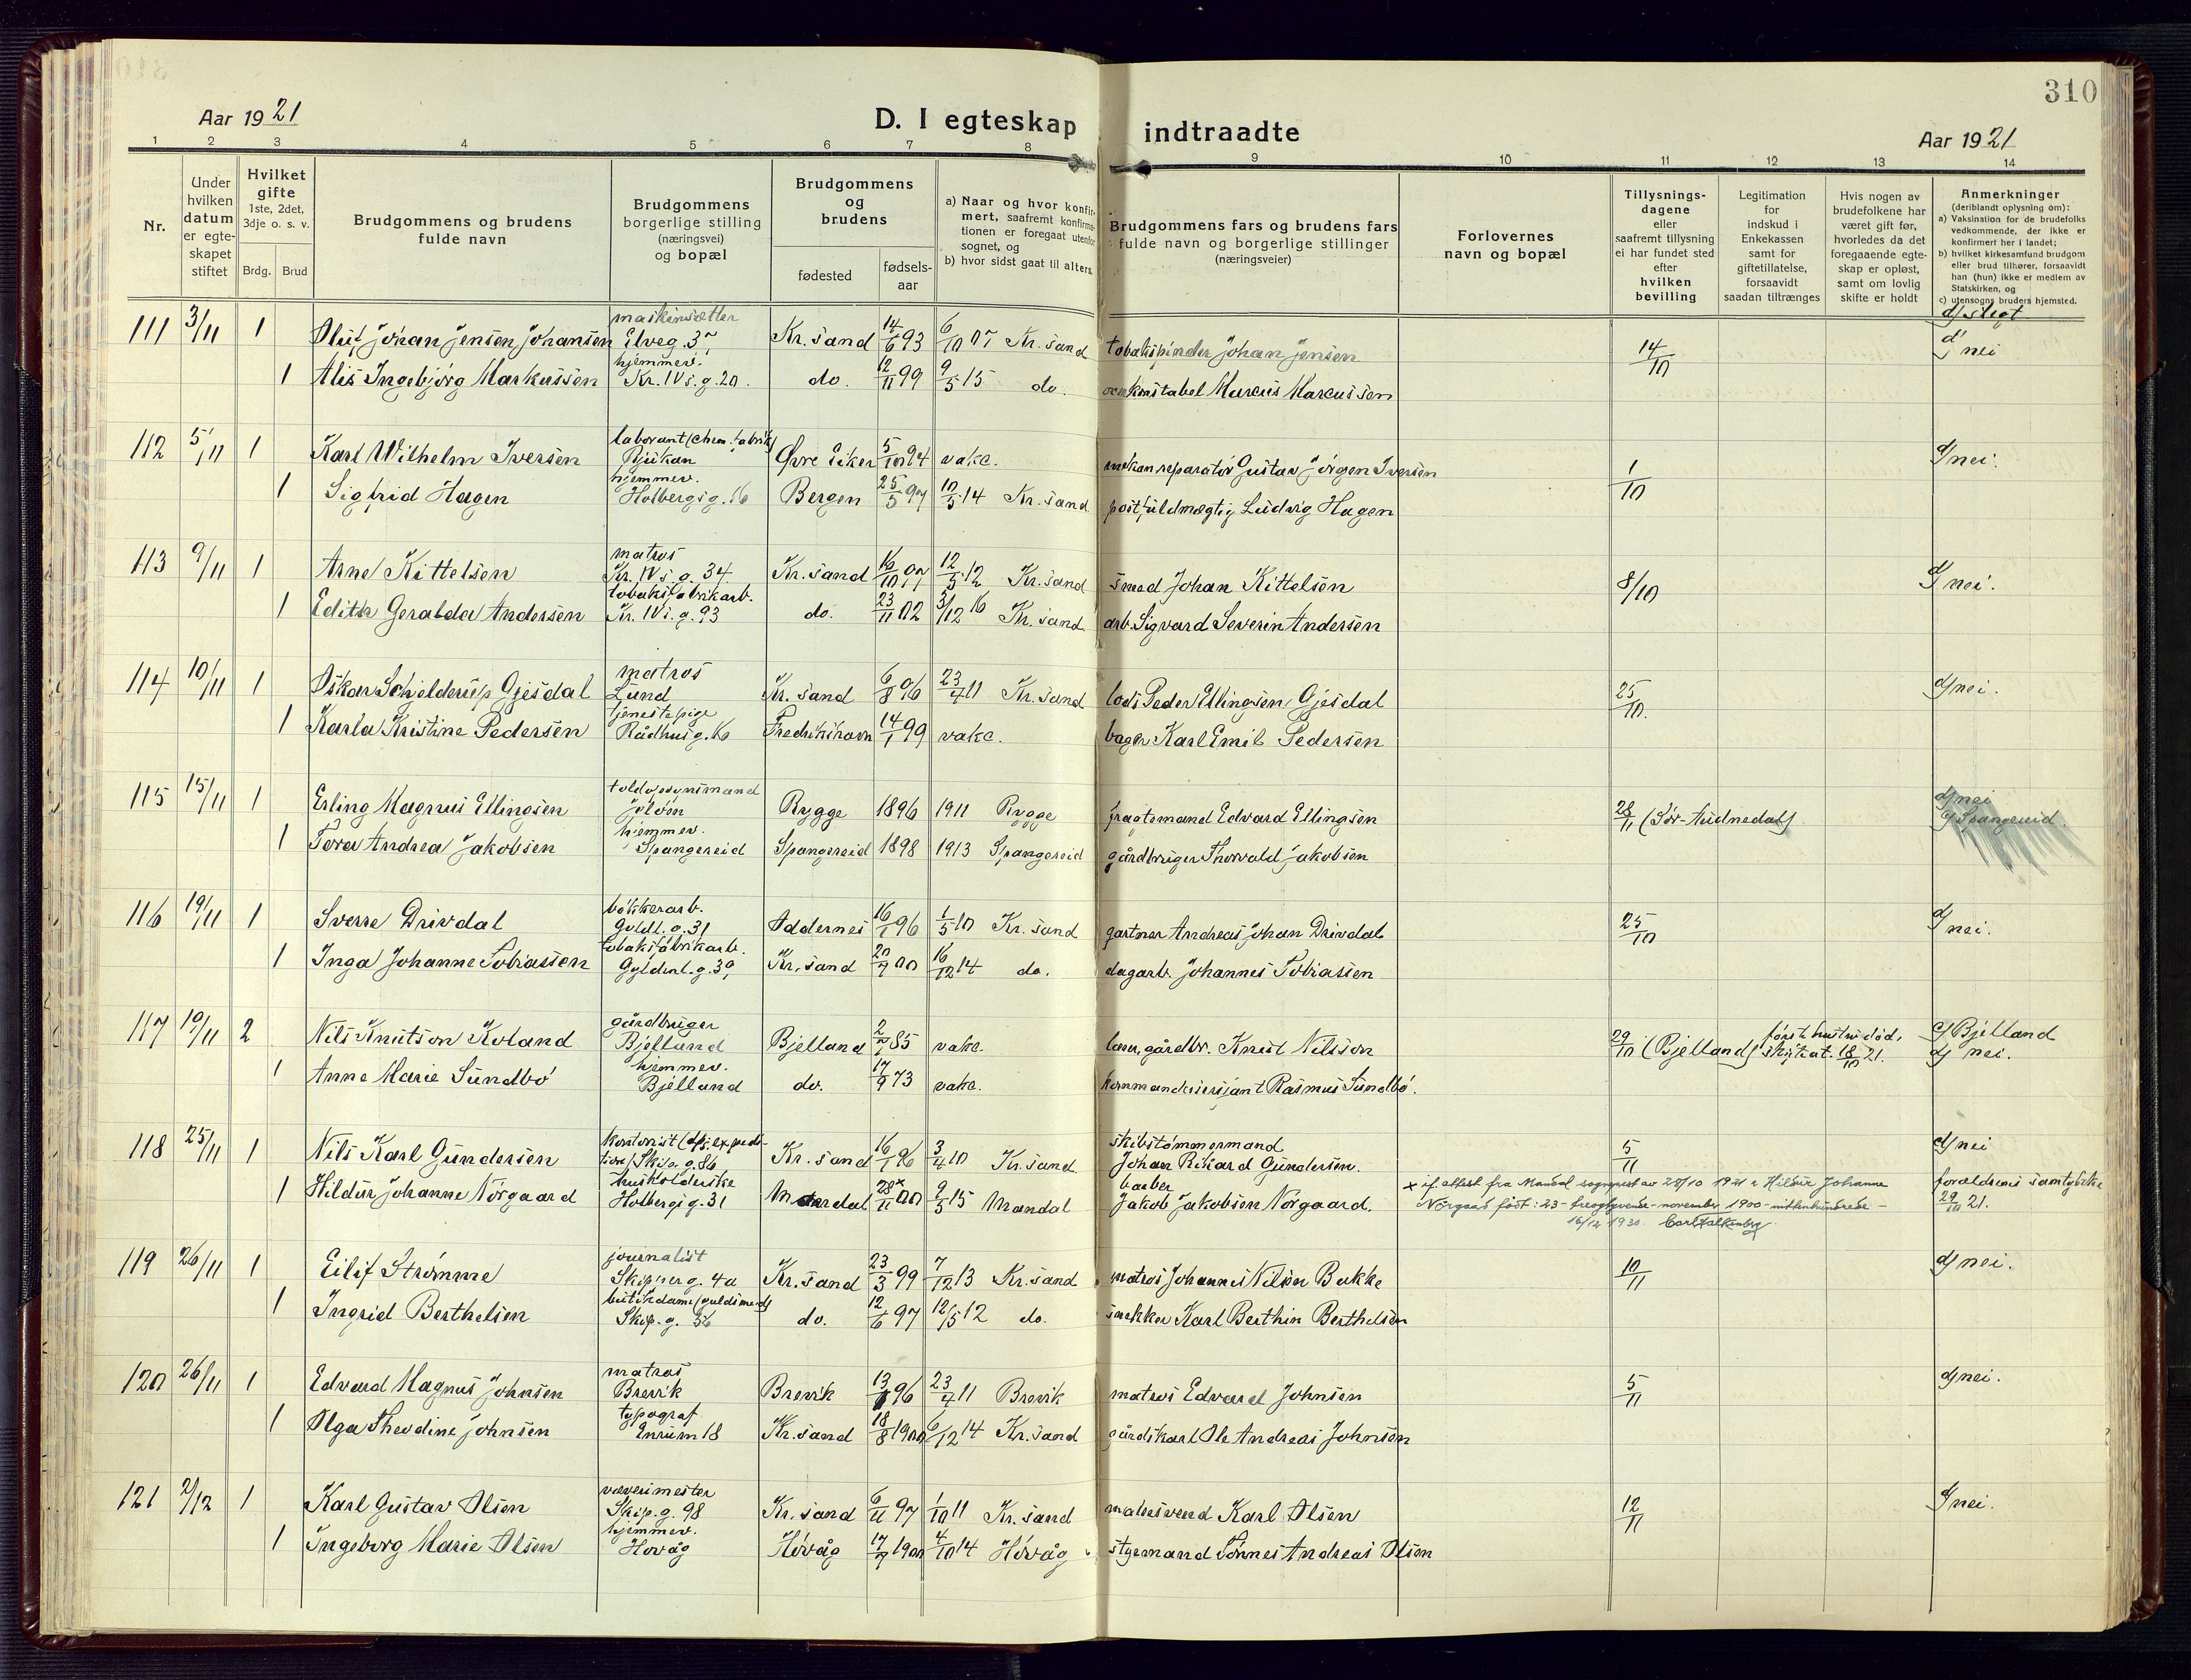 310
Aar 1921
D. I egteskap indtraadte
Aar 1921
1 2 3 4 5 6 7 8 9 10 11 12 13 14
Nr.
Under hvilken datum er egteskapet stiftet
Hvilket gifte 1ste, 2det, 3dje o. s. v.
Brdg. Brud
Brudgommens og brudens fulde navn
Brudgommens borgerlige stilling (næringsvei) og bopæl
Brudgommens og brudens
fødested
fødselsaar
a) Naar og hvor konfirmert, saafremt konfirmationen er foregaat utenfor sognet, og
b) hvor sidst gaat til alters.
Brudgommens fars og brudens fars fulde navn og borgerlige stillinger (næringsveier)
Forlovernes navn og bopæl
Tillysningsdagene eller saafremt tillysning ei har fundet sted efter hvilken bevilling
Legitimation for indskud i Enkekassen samt for giftetillatelse, forsaavidt saadan tiltrænges
Hvis nogen av brudefolkene har været gift før, hvorledes da det foregaaende egteskap er opløst, samt om lovlig skifte er holdt
Anmerkninger (deriblandt oplysning om):
a) Vaksination for de brudefolks vedkommende, der ikke er konfirmert her i landet;
b) hvilket kirkesamfund brudgom eller brud tilhører, forsaavidt han (hun) ikke er medlem av Statskirken, og
c) utensogns bruders hjemsted.
d) slegt
111 3/11 1 Oluf Johan Jensen Johansen maskinsætter Elveg. 37 Kr.sand 14/6 93 6/10 07 Kr.sand tobakspinder Johan Jensen 14/10 d) nei
1 Alis Ingebjørg Markussen hjemmev. Kr. IVs.g. 20. do. 12/11 99 9/5 15 do. Marcus Marcussen
112 5/11 1 Karl Wilhelm Iversen laborant (chem. fabrik) Rjukan Øvre Eiker 5/10 94 vakc. mekan.reparatör Gustav Jörgen Iversen 1/10 d) nei.
1 Sigfrid Hagen hjemmev. Holbergsg. 16 Bergen 25/5 97 10/5 14 Kr.sand postfuldmægtig Ludvig Hagen
113 9/11 1 Arne Kittelsen matros Kr. IVs.g. 34 Kr.sand 16/10 97 12/5 12 Kr.sand smed Johan Kittelsen 8/10 d) nei.
1 Edith Geralda Andersen tobaksfabrikarb. Kr. IVs.g. 93 do. 23/11 02 3/12 16 Kr.sand arb. Sigvard Severin Andersen
114 10/11 1 Oskar Schjelderup Gjesdal matros Lund Kr.sand 6/8 96 23/4 11 Kr.sand lods Peder Ellingsen Gjesdal 25/10. d) nei.
1 Karla Kristine Pedersen tjenestepige Rådhusg. 16 Fredrikshavn 14/1 99 vakc. bager Karl Emil Pedersen
115 15/11 1 Erling Magnus Ellingsen toldopsynsmand Jelöen Rygge 1896 1911 Rygge fragtemand Edvard Ellingsen 28/11 (Sör-Audnedal) d) nei
1 Tora Andrea Jakobsen hjemmev. Spangereid Spangereid 1898 1913 Spangereid gårdbruger Thorvald Jakobsen c) Spangereid.
116 19/11 1 Sverre Drivdal bökkerarb. Gyldl.g. 31 Oddernes 16/1 96 1/5 10 Kr.sand gartner Andreas Johan Drivdal 25/10 d) nei.
1 Inga Johanne Tobiassen tobaksfabrikarb. Gyldenl.g. 39 Kr.sand 20/7 00 16/12 14 do. dagarb. Johannes Tobiassen
117 19/11 2 Nils Knutson Röland gårdbruger Bjelland Bjelland 2/7 85 vakc. gårdbr. Knut Nilsson 29/10 (Bjelland) først hustru död, skifteat. 18/10 21. c) Bjelland
1 Anne Marie Sundbö hjemmev. Bjelland do. 17/9 73 vakc. kommandersersjant Rasmus Sundbö. d) nei.
118 25/11 1 Nils Karl Gundersen kontorist (dps.expedition) Skip.g. 86 Kr.sand 16/1 96 3/4 10 Kr.sand. skibstömmermand Johan Rikard Gundersen. 5/11 d) nei
1 Hildur Johanne Nörgaard husholderske Holbergsg. 31 Mandal 28x/11 00 9/5 15 Mandal barber Jakob Jakobsen Nörgaard. forældrenes samtykke 29/10 21.
x if. attest fra Mandal sogneprest av 28/10 1921 er Hildur Johanne
Nörgaard födt: 23 - treogtyvende - november 1900 - nittenhundrede -
16/12 1930. Carl Falkenberg
119 26/11 1 Eilif Strömme journalist Skipperg. 4a Kr.sand 23/3 99 7/12 13 Kr.sand matros Johannes Nilsen Bakke 10/11 d) nei.
1 Ingrid Berthelsen butikdame (guldsmed) Skip.g. 56 do. 12/6 97 12/5 12 do. snekker Karl Berthin Berthelsen
120 26/11 1 Edvard Magnus Johnsen matros Brevik Brevik 13/8 96 23/4 11 Brevik matros Edvard Johnsen 5/11 d) nei.
1 Olga Theodine Johnsen typograf Enrum 18 Kr.sand 18/8 1900 6/12 14 Kr.sand gårdskarl Ole Andreas Johnsen
121 2/12 1 Karl Gustav Olsen væverimester Skip.g. 98 Kr.sand 6/11 97 1/10 11 Kr.sand malersvend Karl Olsen 12/11 d) nei.
1 Ingeborg Marie Olsen hjemmev. Hövåg Hövåg 17/7 1900 4/10 14 Hövåg styrmand Tönnes Andreas Olsen